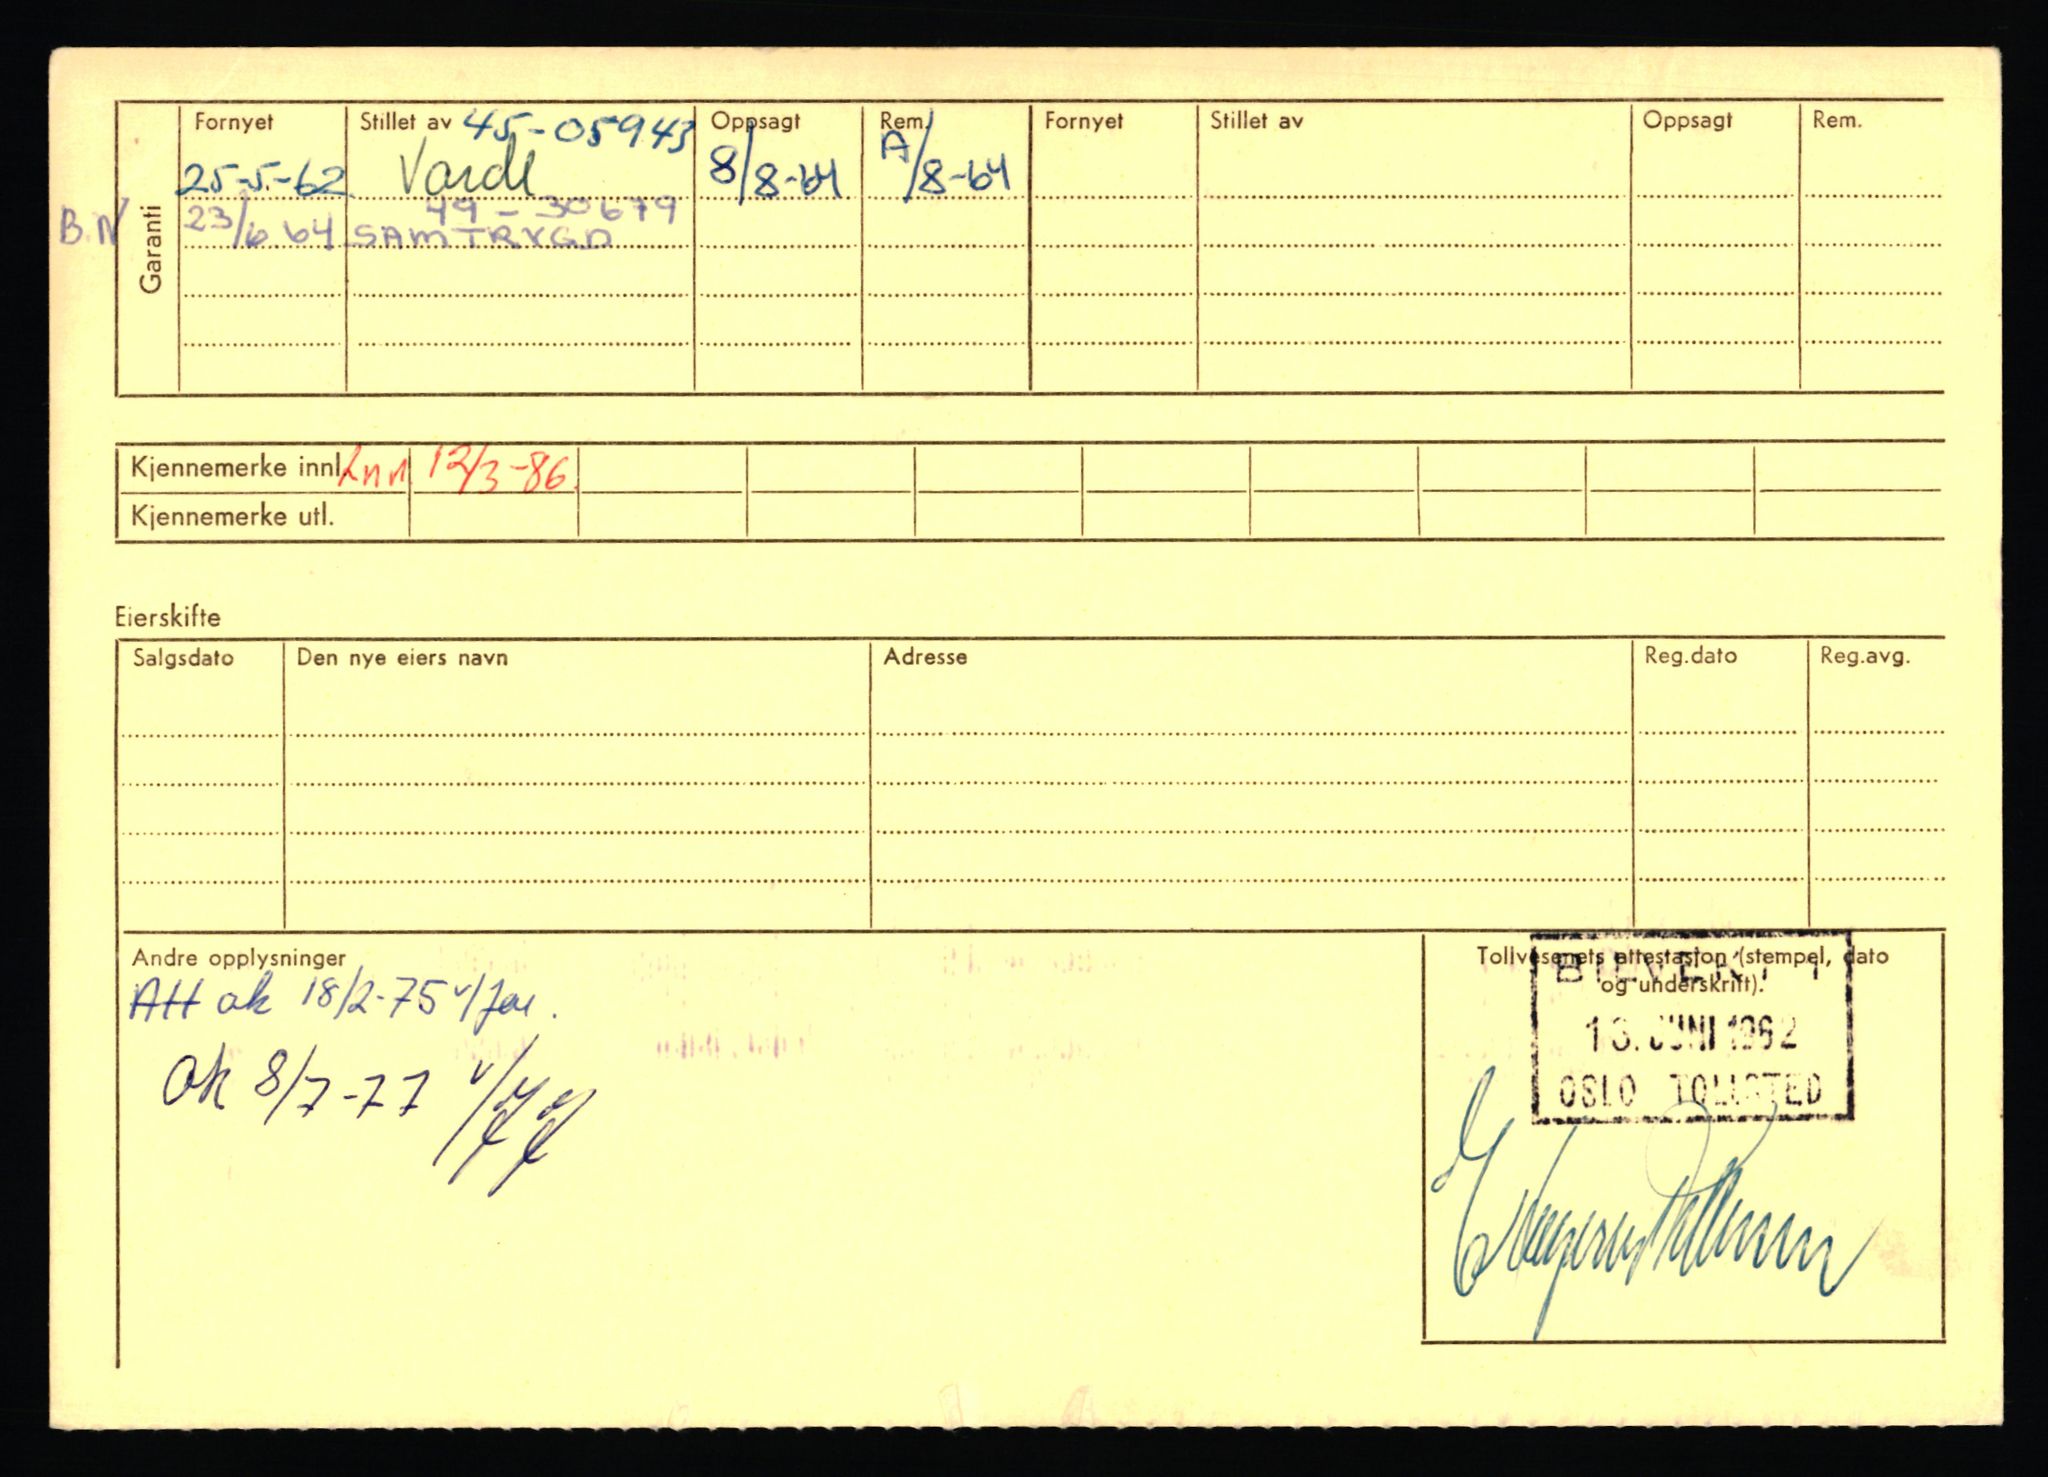 Fornyet Stillet av 45-05943 Oppsagt Rem. Fornyet Stillet av Oppsagt Rem.
25-5-62 Varde 8/8-64 A/8-64
49-30679
B.N 23/6 64 SAMTRYGD
Garanti
Kjennemerke innl. Inn 12/3-86.
Kjennemerke utl.
Eierskifte
Salgsdato Den nye eiers navn Adresse Reg.dato Reg.avg.
Andre opplysninger
Att ok 18/2-75 v/
ok 8/7-77 v/
Tollvesenets attestasjon (stempel, dato
og underskrift).
13. JUNI 1962
OSLO TOLLSTED